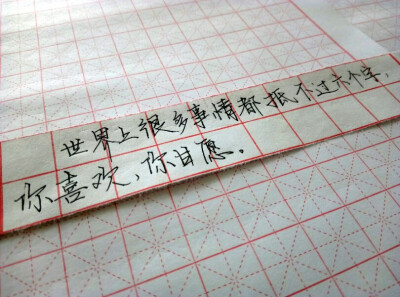 世界上很多事情都抵不过六个字，
你喜欢、你甘愿。